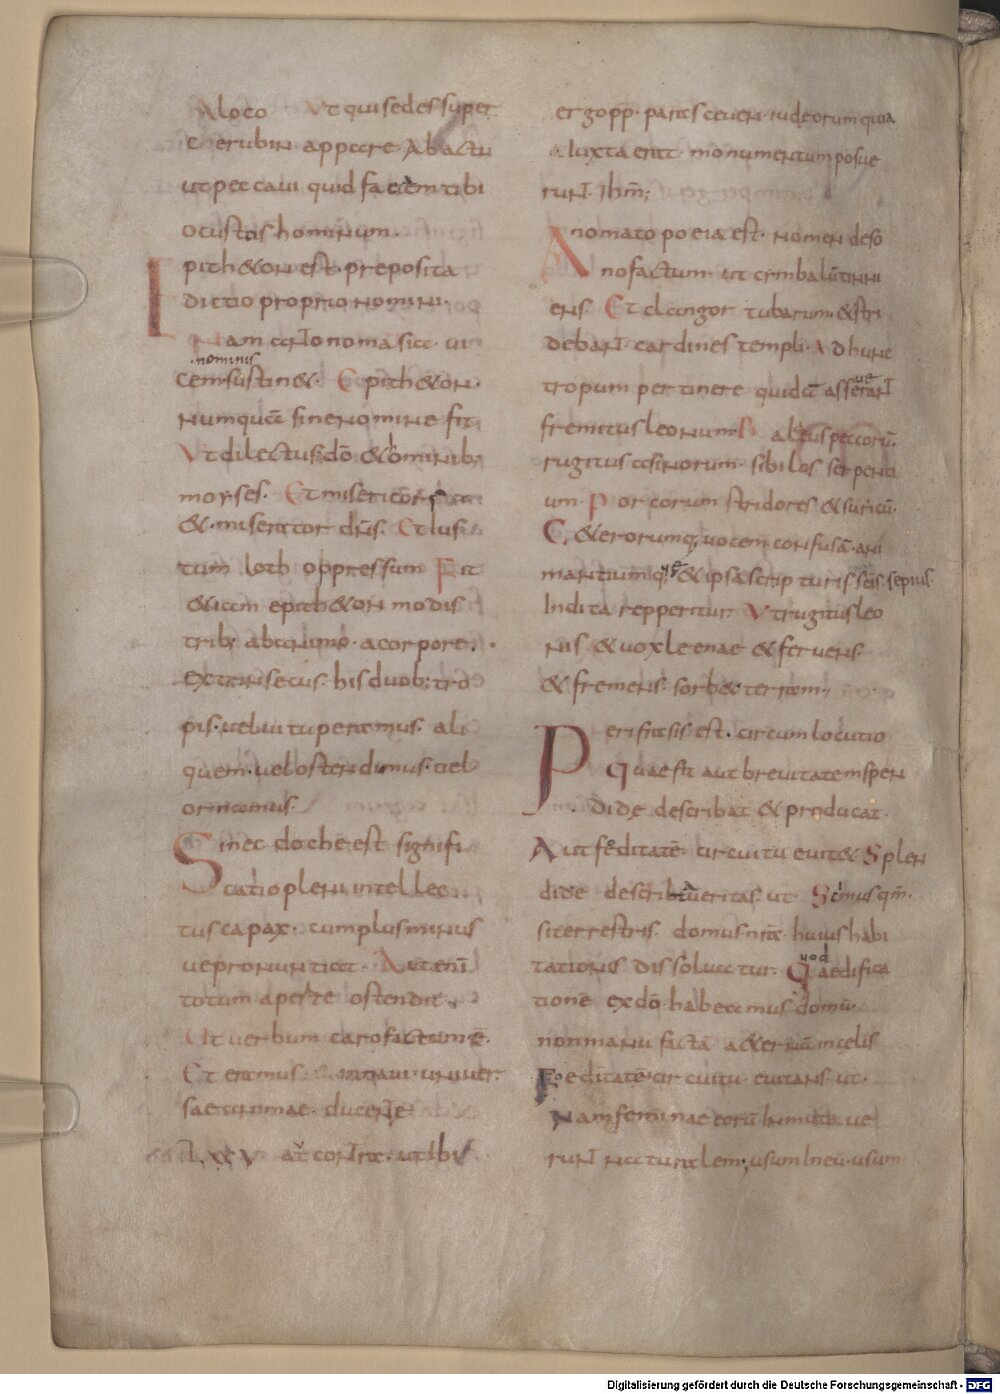 A loco Ut qui sedes super
cherubin appare Ab actu
ut peccavi quid faciam tibi
o custos hominum.
Epitheton est preposita
dictio proprio nomini.
Nam antonomasia. vi
.nominis
cem sustinet. Epitheton.
numquā sine nomine fit
Ut dilectus dō & hominib;
moyses. Et misericors
& miserator dñs. Et ius
tum loth oppressum Fit
etiam epitheton modis
trib; ab animo. a corpore.
extrinsecus. his duob; tro
pis. vel vituperamus. ali
quem. vel ostendimus. vel
ornamus.
Sinecdoche est signifi
catio pleni intellec
tus capax. cum plus minus
ve pronuntiat. Aut enī
totum a parte ostendit.
Ut verbum caro factum ē.
Et eramus in navi univer
sae animae. ducente
LXXV. at contra. ut ibi
ergo pp. parasceuen. iudeorum quia
iuxta erat. monumentum posue
runt ihm;
Anomatopoeia est. nomen deso
no factum. ut cimbalū tinni
ens. Et clangor tubarum. & stri
debant cardines templi. Ad hunc
ue
tropum pertinere quidā asserant
fremitus leonum. Balatus peccorū.
rugitus asinorum. sibilos serpenti
um. Porcorum stridores & suricū.
Ceterorumq; vocem confusā. ani
mantium q; & ipsa scripturis scīs. sepius.
Indita repperitur. Ut rugitus leo
nis. & vox leenae & fervens.
& fremens. sorbet terram;
Perifrasis est. circumlocutio
Quae fit aut brevitatem splen
dide describat & producat.
Aut feditatē. circuitu evitet Splen
dide describit veritas. ut. Scimus qm̄.
si terrestris. domus nr̄a. huius habi
uod
tationis dissolvatur. Q aedifica
tionē ex dō habeamus domū.
non manu factā aeternā in celis
Foeditatē circuitu. evitans. ut.
Nam feminae eorū inmutave
runt naturalem; usum in eū. usum